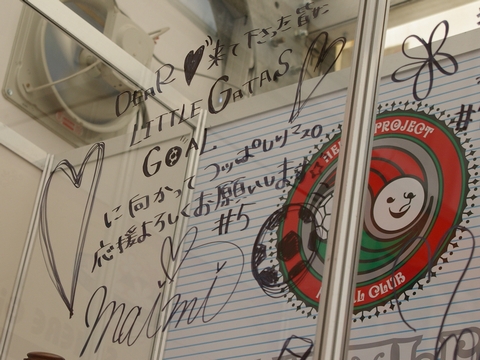 DeaR ♥ 来て下さった皆に
LITTLE GATAS
GOAL
に向かってつっぱしり
応援よろしくお願いします
#5
maimi
PROJECT
CLUB